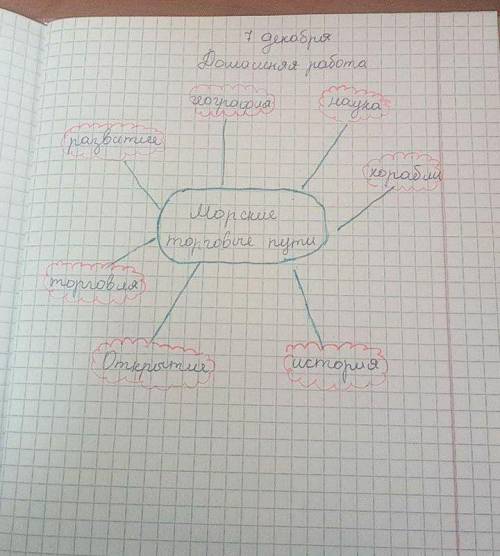 7 декабря
Домашняя работа
география
наука
развитие
корабли
Морские
торговые пути
торговля
Открытия
история